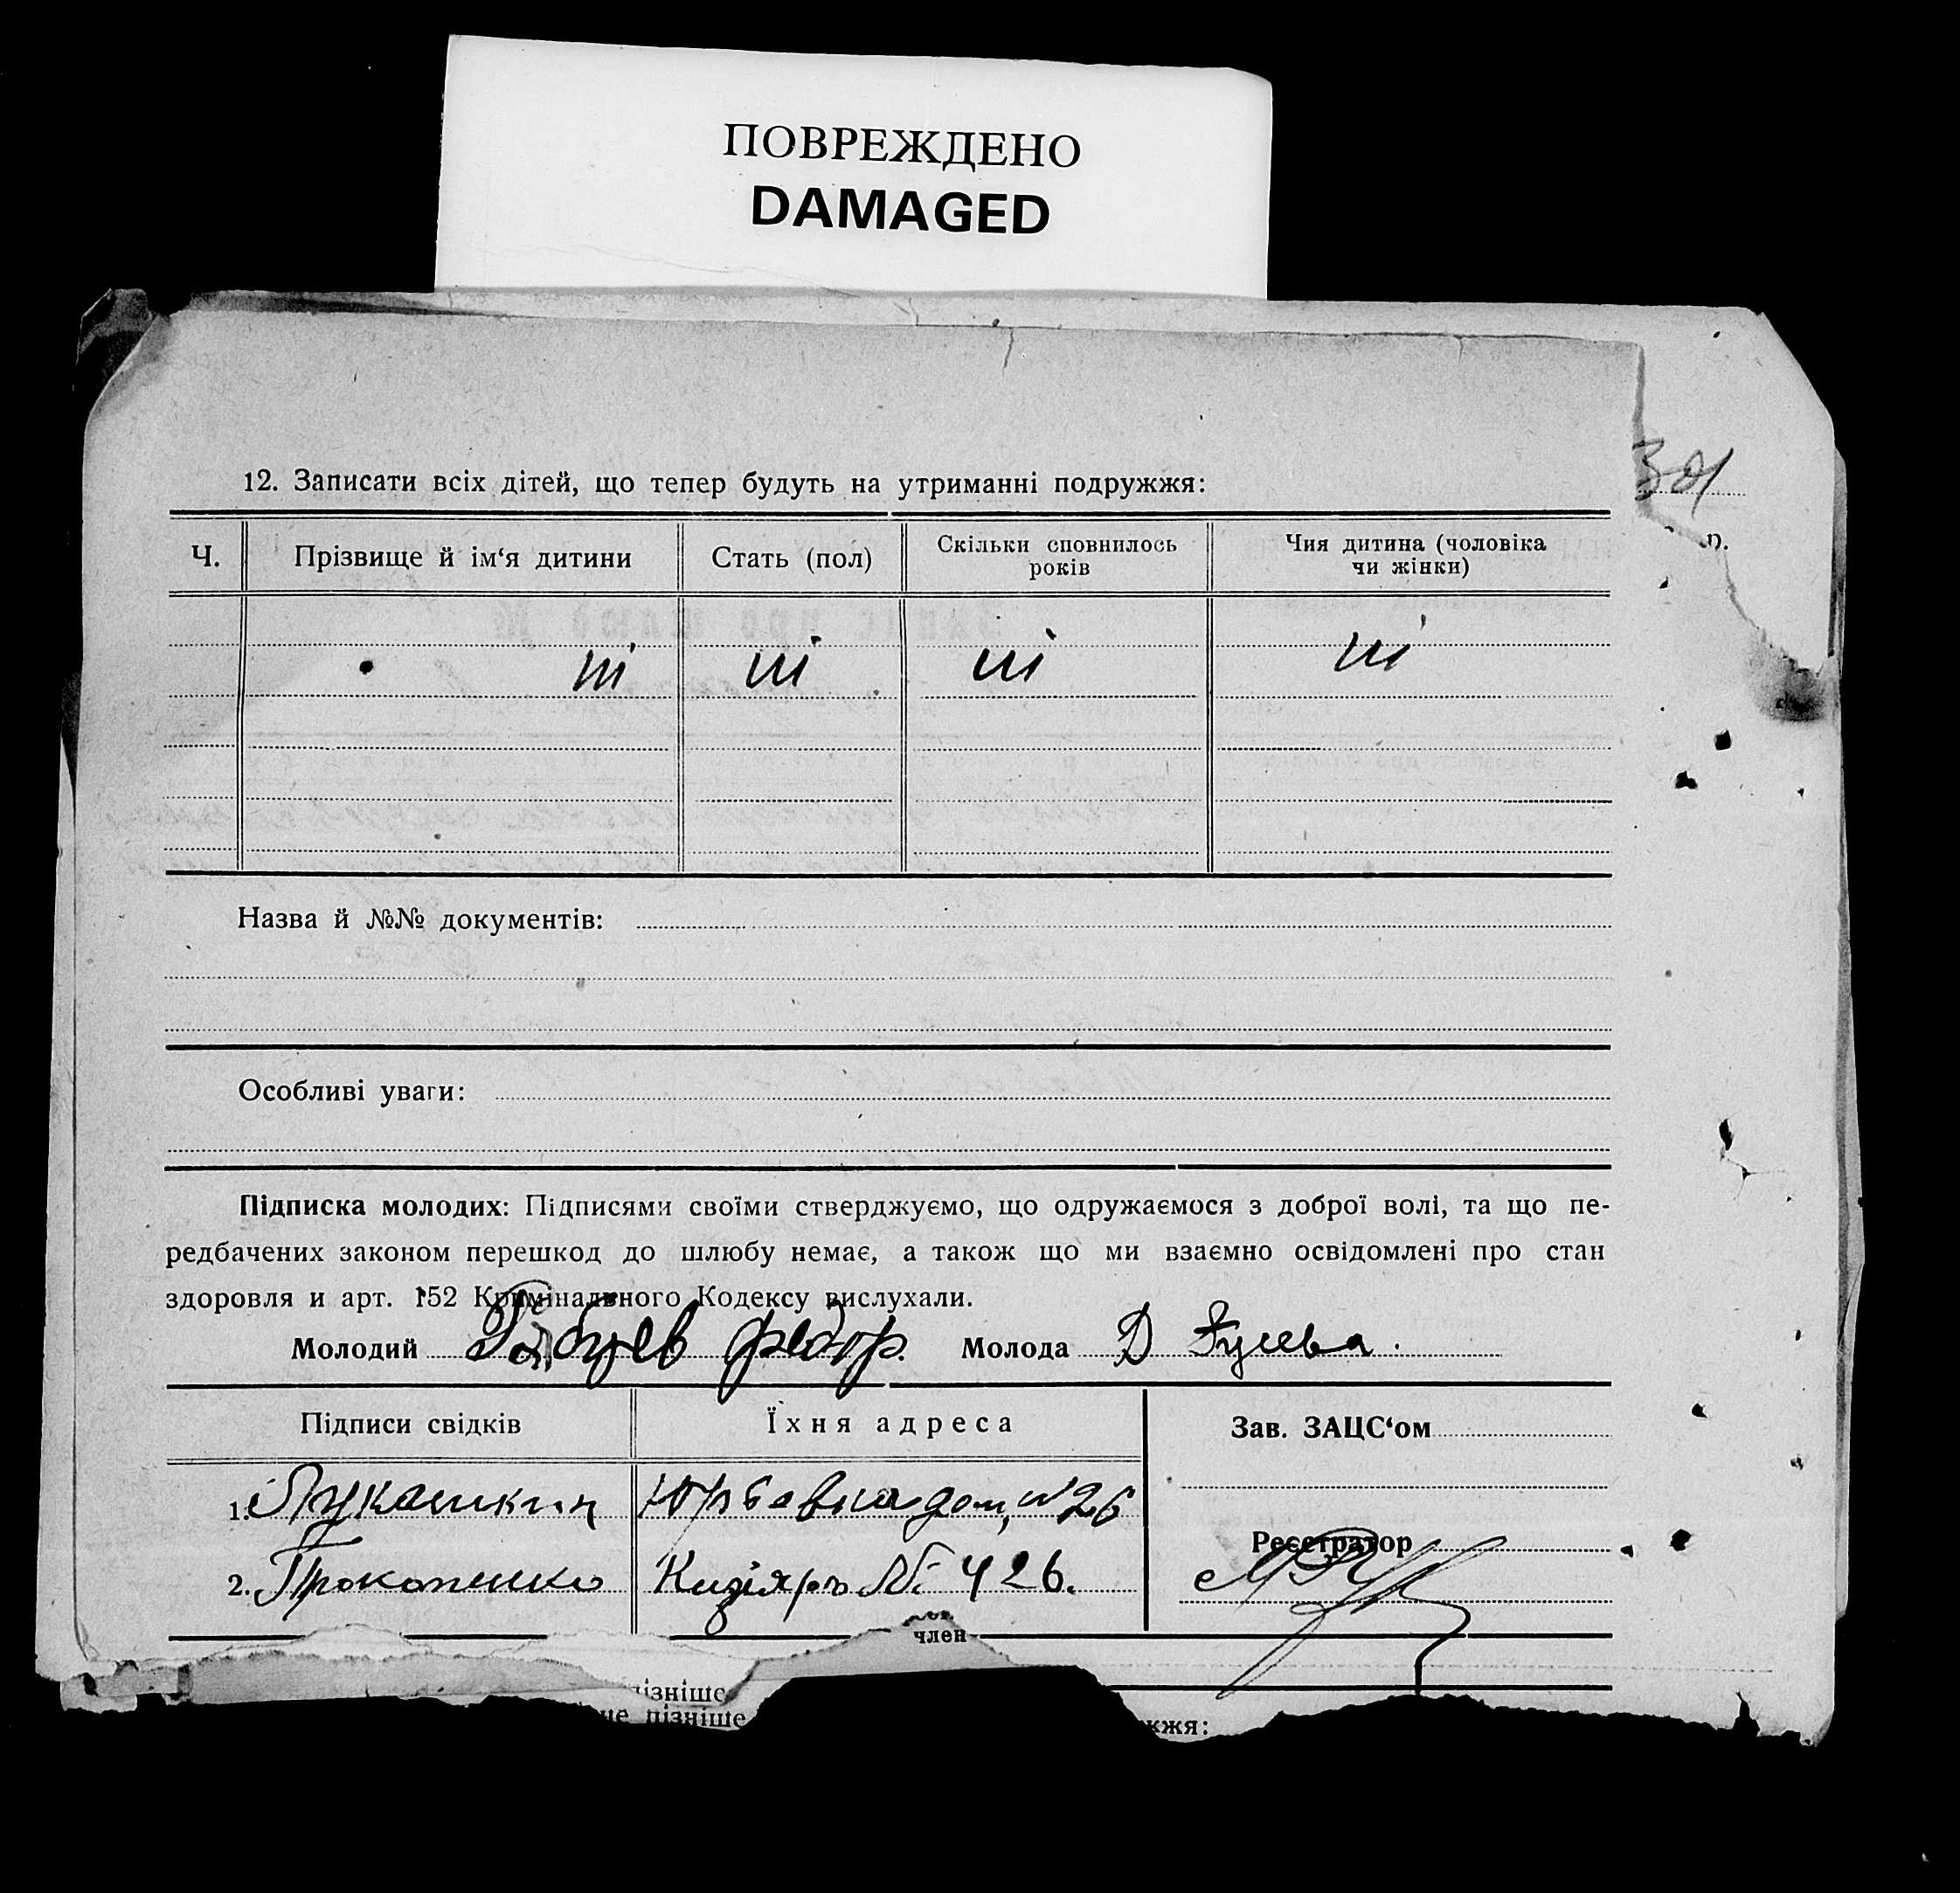 ПОВРЕЖДЕНО
DAMAGED
12. Записати всіх дітей, що тепер будуть на утриманні подружжя:
Ч. Прізвище й ім‘я дитини Стать (пол) Скільки сповнилось років Чия дитина (чоловіка чи жінки)
ні ні ні ні
Назва й №№ документів:
Особливі уваги:
Підписка молодих: Підписями своїми стверджуємо, що одружаємося з доброї волі, та що пе-
редбачених законом перешкод до шлюбу немає, а також що ми взаємно освідомлені про стан
здоровля и арт. 152 Кримінального Кодексу вислухали.
Молодий Федор. Молода Д
Підписи свідків Їхня адреса Зав. ЗАЦС‘ом
1. Лукашкин дом, №26
Реєстратор
2. Прокопенко № 426.
член
пізніше
не пізніше
жжя: